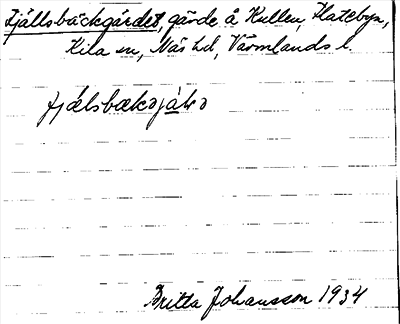 Fjällsbäckgärdet, gärde å Kullen, Flatebyn,
Kila sn, Näs hd, Värmlands l.
Britta Johansson 1934